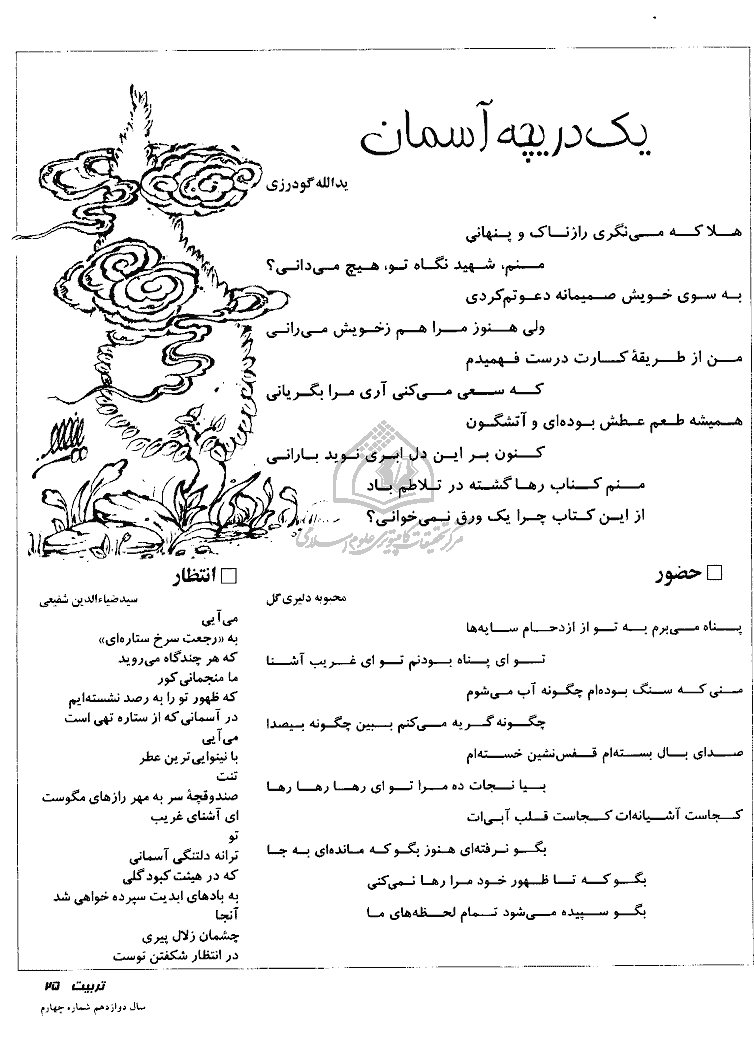 یک دریچه آسمان
یدالله گودرزی
هلا که می‌نگری رازناک و پنهانی
منم، شهید نگاه تو، هیچ می‌دانی؟
به سوی خویش صمیمانه دعوتم‌کردی
ولی هنوز مرا هم زخویش می‌رانی
من از طریقهٔ کارت درست فهمیدم
که سعی می‌کنی آری مرا بگریانی
همیشه طعم عطش بوده‌ای و آتشگون
کنون بر این دل ابری نوید بارانی
منم کتاب رها گشته در تلاطم باد
از این کتاب چرا یک ورق نمی‌خوانی؟
مرکز تحقیقات کامپیوتری علوم اسلامی
□ حضور
محبوبه دلیری گل
پناه می‌برم به تو از ازدحام سایه‌ها
تو ای پناه بودنم تو ای غریب آشنا
منی که سنگ بوده‌ام چگونه آب می‌شوم
چگونه گریه می‌کنم ببین چگونه بیصدا
صدای بال بسته‌ام قفس‌نشین خسته‌ام
بیا نجات ده مرا تو ای رها رها رها
کجاست آشیانه‌ات کجاست قلب آبی‌ات
بگو نرفته‌ای هنوز بگو که مانده‌ای به جا
بگو که تا ظهور خود مرا رها نمی‌کنی
بگو سپیده می‌شود تمام لحظه‌های ما
□ انتظار
سید ضیاءالدین شفیعی
می‌آیی
به «رجعت سرخ ستاره‌ای»
که هر چندگاه می‌روید
ما منجمانی کور
که ظهور تو را به رصد نشسته‌ایم
در آسمانی که از ستاره تهی است
می‌آیی
با نینوایی‌ترین عطر
تنت
صندوقچهٔ سر به مهر رازهای مگوست
ای آشنای غریب
تو
ترانه دلتنگی آسمانی
که در هیئت کبود گلی
به بادهای ابدیت سپرده خواهی شد
آنجا
چشمان زلال پیری
در انتظار شکفتن توست
تربیت ۲۵
سال دوازدهم شماره چهارم